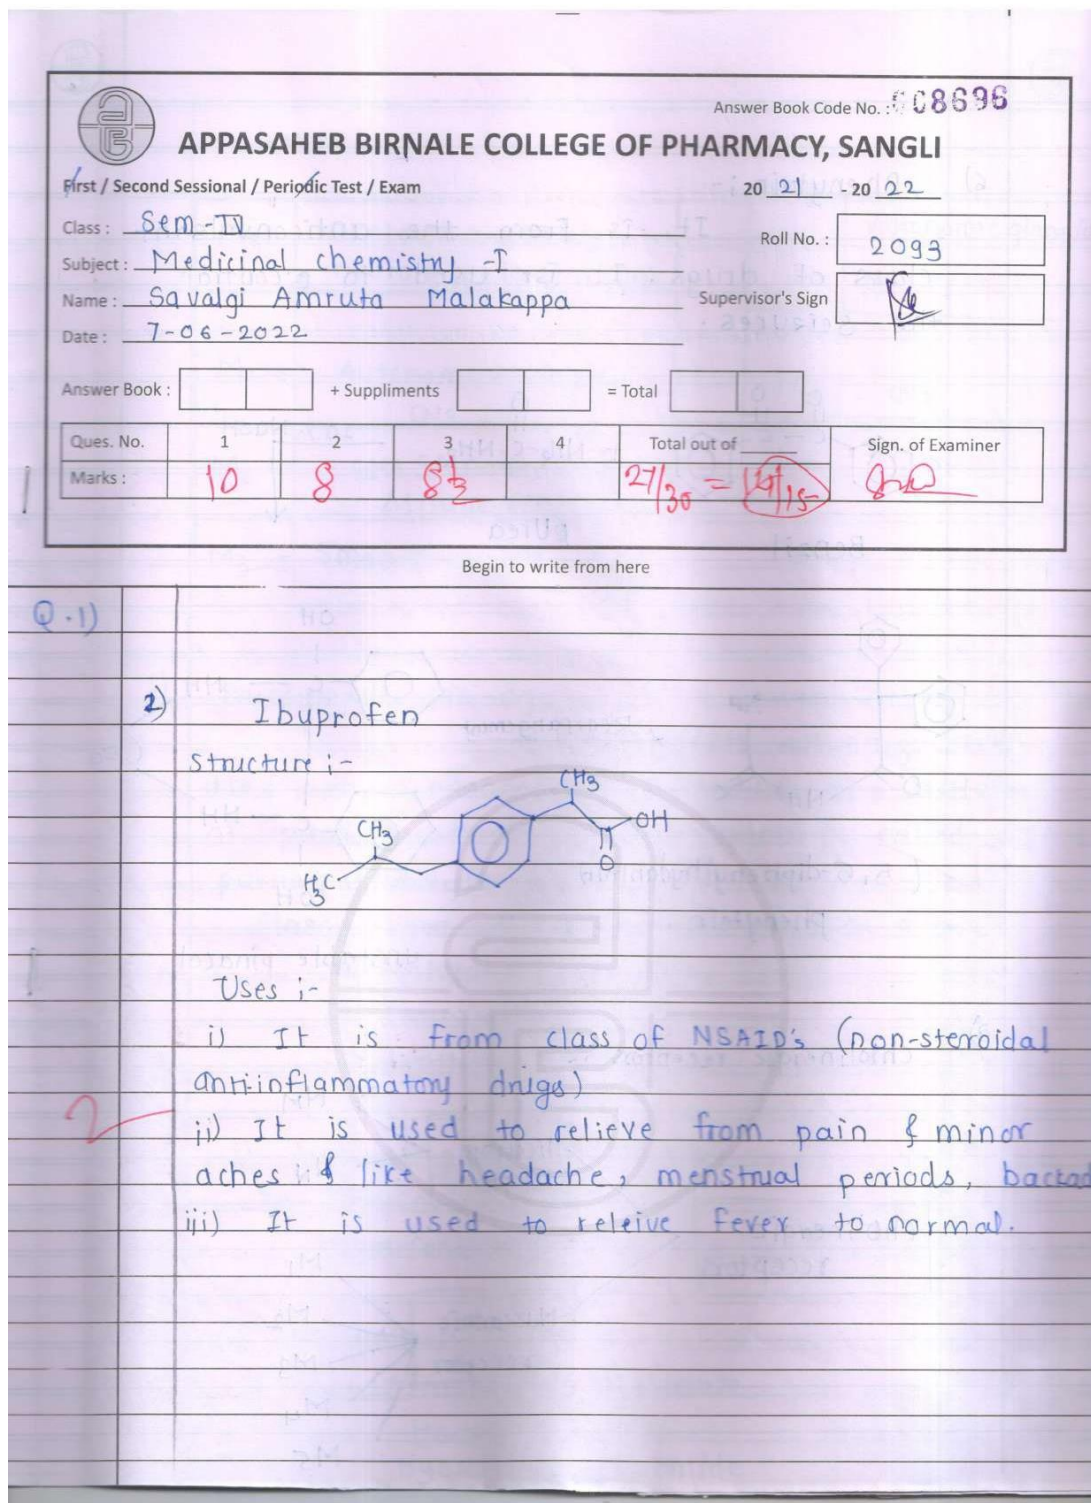 Answer Book Code No. : 008696
APPASAHEB BIRNALE COLLEGE OF PHARMACY, SANGLI
First / Second Sessional / Periodic Test / Exam 20 21 - 20 22
Class : Sem-IV
Roll No. : 2093
Subject : Medicinal chemistry -I
Name : Savalgi Amruta Malakappa
Supervisor's Sign
Date : 7-06-2022
Answer Book : + Suppliments = Total
Ques. No. 1 2 3 4 Total out of Sign. of Examiner
Marks : 10 8 8½ 27/30 = 14/15
Begin to write from here
Q.1)
2) Ibuprofen
Structure :-
CH3
CH3 OH
H3C O
Uses :-
i) It is from class of NSAID's (non-steroidal
anti-inflammatory drugs)
2
ii) It is used to relieve from pain & minor
aches & like headache, menstrual periods,
iii) It is used to releive fever to normal.